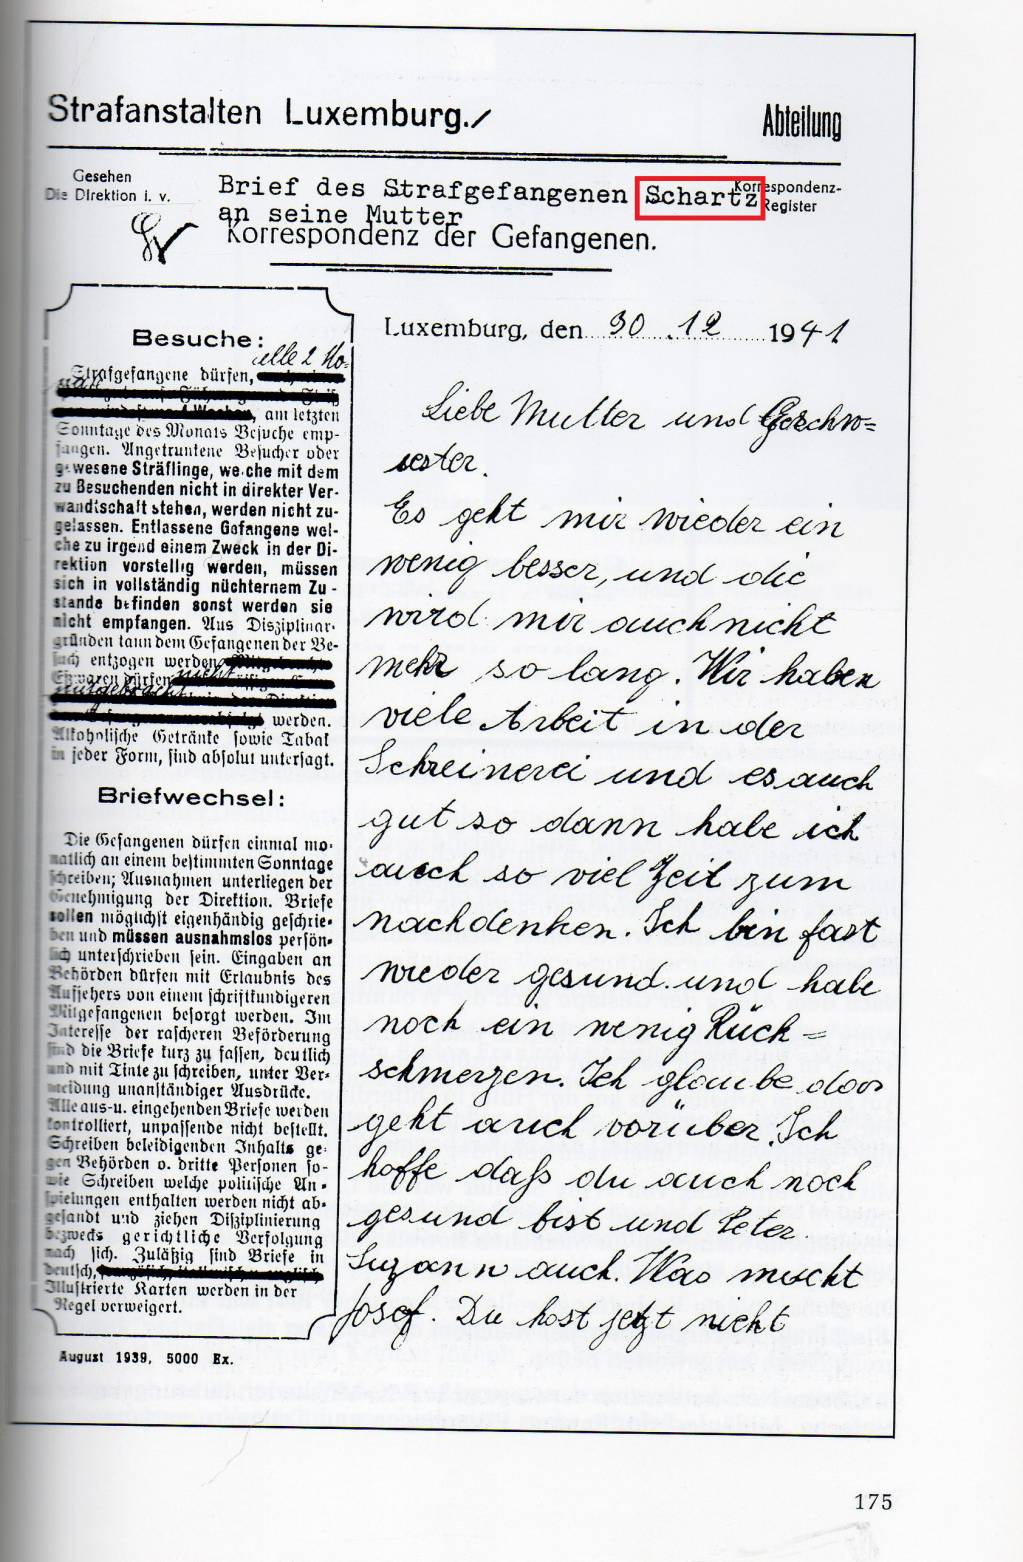 Strafanstalten Luxemburg./
Abteilung
Gesehen
Die Direktion i. v.
Brief des Strafgefangenen Schartz
an seine Mutter
Korrespondenz-
Register
Korrespondenz der Gefangenen.
Besuche:
alle 2 Mo-
Strafgefangene dürfen,
nat
, am letzten
Sonntage des Monats Besuche emp-
fangen. Angetrunkene Besucher oder
gewesene Sträflinge, welche mit dem
zu Besuchenden nicht in direkter Ver-
wandtschaft stehen, werden nicht zu-
gelassen. Entlassene Gefangene wel-
che zu irgend einem Zweck in der Di-
rektion vorstellig werden, müssen
sich in vollständig nüchternem Zu-
stande befinden sonst werden sie
nicht empfangen. Aus Disziplinar-
gründen kann dem Gefangenen der Be-
such entzogen werden
Eßwaren dürfen nicht
mitgebracht
werden.
Alkoholische Getränke sowie Tabak
in jeder Form, sind absolut untersagt.
Briefwechsel:
Die Gefangenen dürfen einmal mo-
natlich an einem bestimmten Sonntage
schreiben; Ausnahmen unterliegen der
Genehmigung der Direktion. Briefe
sollen möglichst eigenhändig geschrie-
ben und müssen ausnahmslos persön-
lich unterschrieben sein. Eingaben an
Behörden dürfen mit Erlaubnis des
Aufsehers von einem schriftkundigeren
Mitgefangenen besorgt werden. Im
Interesse der rascheren Beförderung
sind die Briefe kurz zu fassen, deutlich
und mit Tinte zu schreiben, unter Ver-
meidung unanständiger Ausdrücke.
Alle aus-u. eingehenden Briefe werden
kontrolliert, unpassende nicht bestellt.
Schreiben beleidigenden Inhalts ge-
gen Behörden o. dritte Personen so-
wie Schreiben welche politische An-
spielungen enthalten werden nicht ab-
gesandt und ziehen Disziplinierung
bezwecks gerichtliche Verfolgung
nach sich. Zuläßig sind Briefe in
deutsch,
Illustrierte Karten werden in der
Regel verweigert.
August 1939, 5000 Ex.
Luxemburg, den 30.12 1941
Liebe Mutter und Geschw=
ester.
Es geht mir wieder ein
wenig besser, und die
wird mir auch nicht
mehr so lang. Wir haben
viele Arbeit in der
Schreinerei und es auch
gut so dann habe ich
auch so viel Zeit zum
nachdenken. Ich bin fast
wieder gesund und habe
noch ein wenig Rück=
schmerzen. Ich glaube das
geht auch vorüber. Ich
hoffe daß du auch noch
gesund bist und Peter
Suzann auch. Was macht
Josef. Du hast jetzt nicht
175